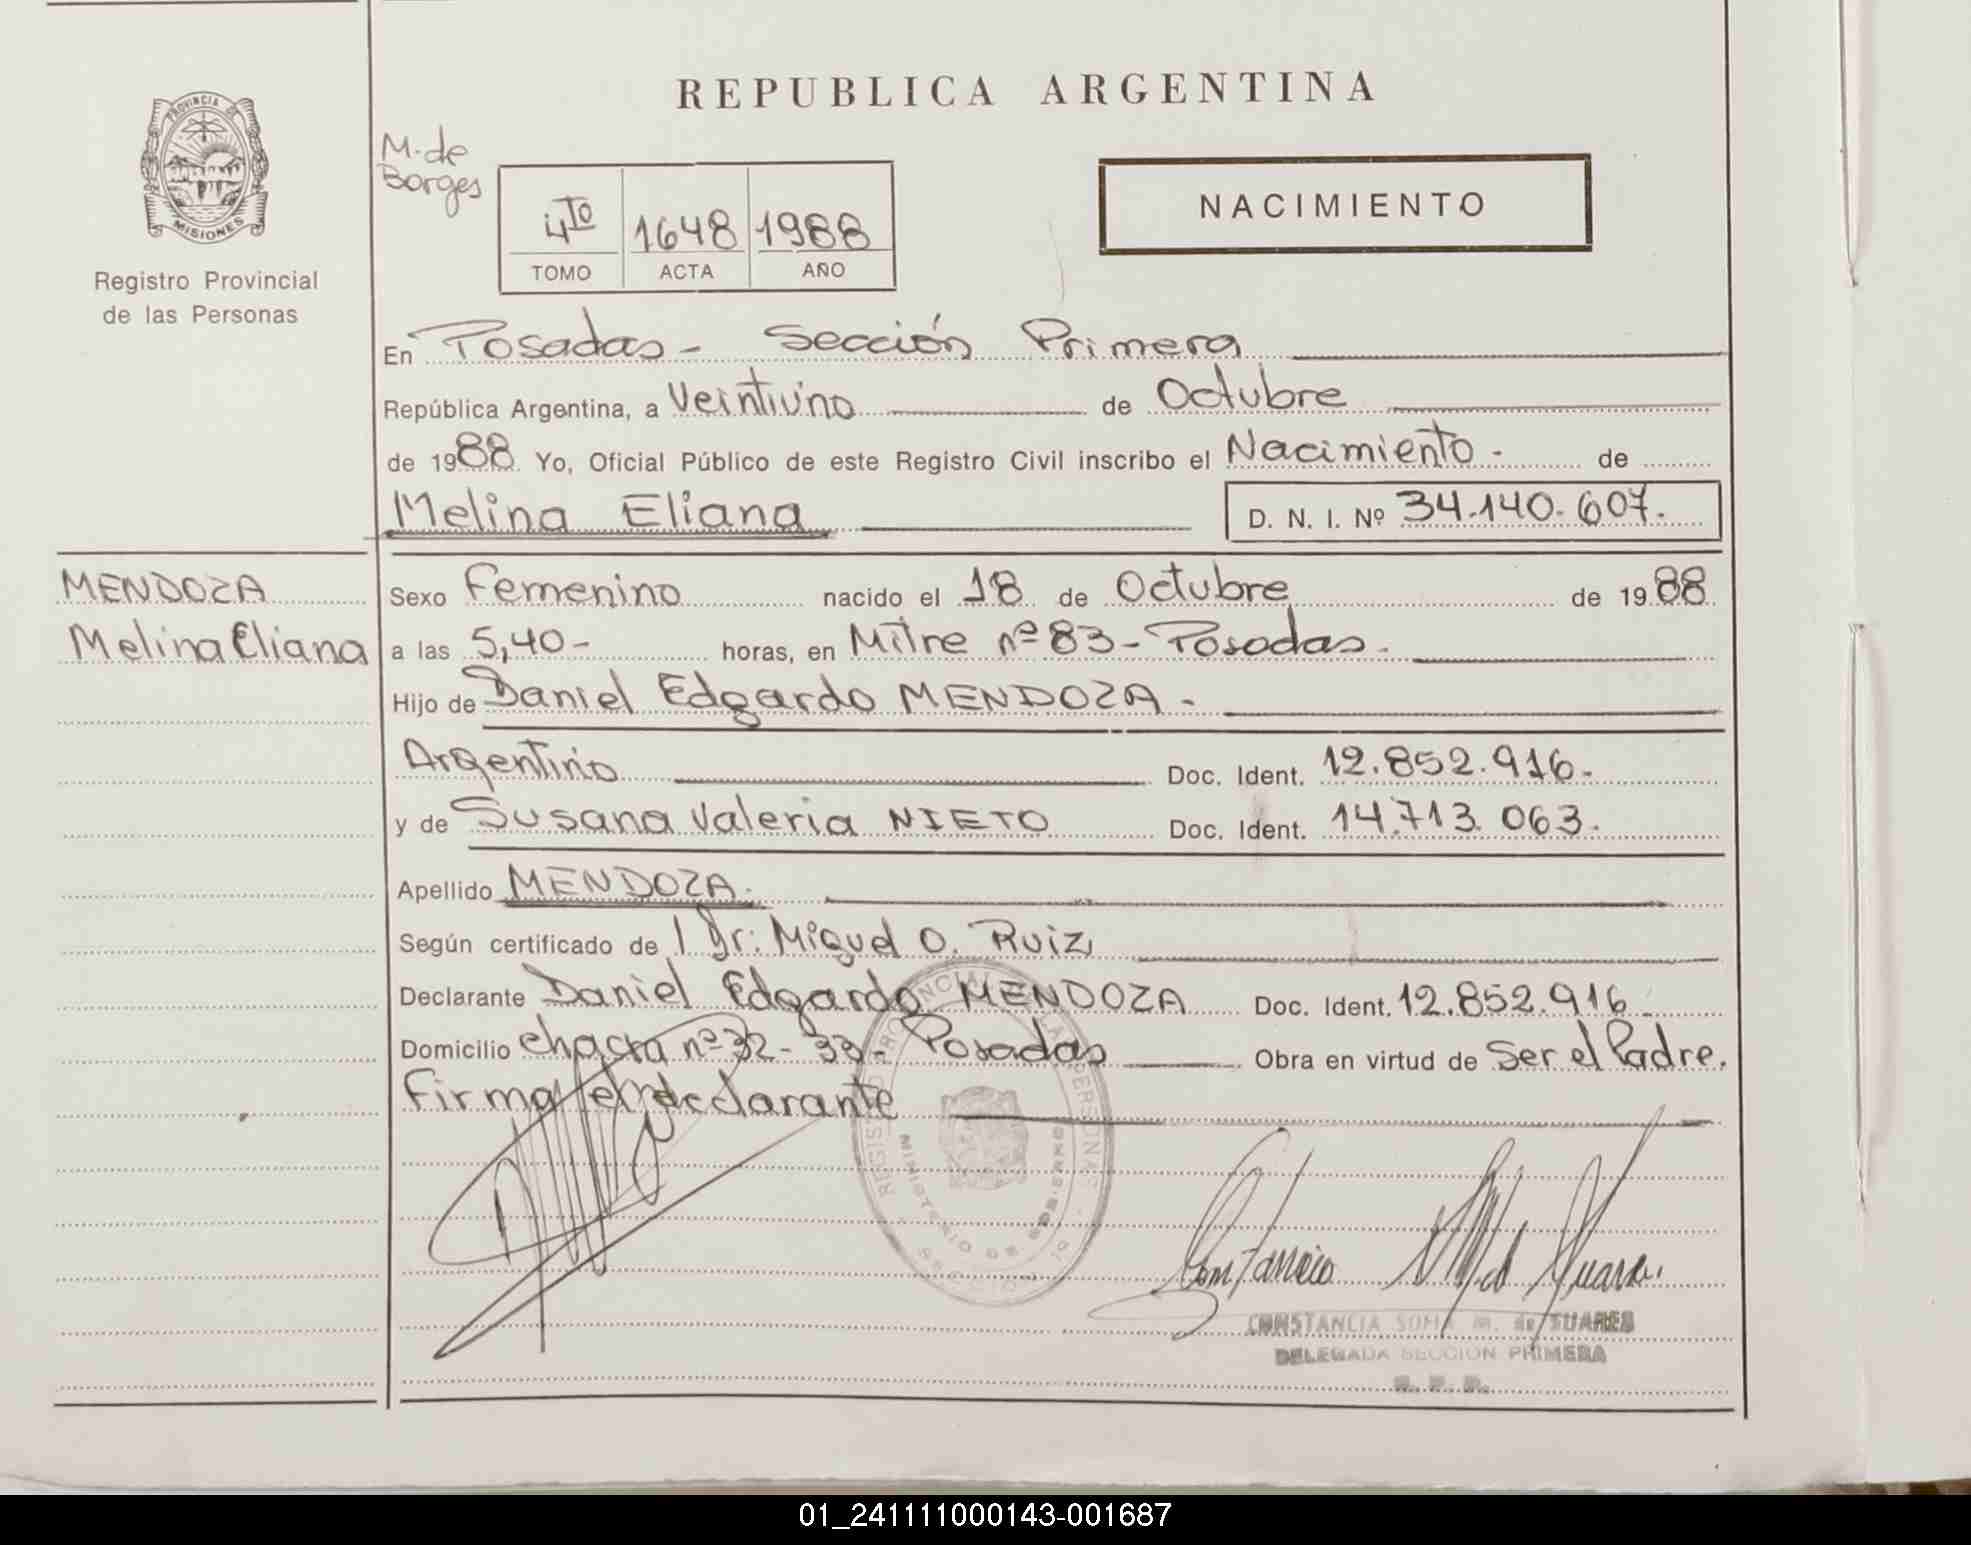 REPUBLICA ARGENTINA
PROVINCIA DE
MISIONES
Registro Provincial
de las Personas
M. de
Borges
NACIMIENTO
4TO 1648 1988
TOMO ACTA AÑO
En Posadas - Sección Primera
República Argentina, a Veintiuno de Octubre
de 1988 Yo, Oficial Público de este Registro Civil inscribo el Nacimiento - de
Melina Eliana D. N. I. Nº 34.140.607.
MENDOZA
Melina Eliana
Sexo Femenino nacido el 18 de Octubre de 1988
a las 5,40 - horas, en Mitre nº 83 - Posadas.
Hijo de Daniel Edgardo MENDOZA -
Argentino Doc. Ident. 12.852.916.
y de Susana Valeria NIETO Doc. Ident. 14.713.063.
Apellido MENDOZA.
Según certificado de / Dr: Miguel O. Ruiz,
Declarante Daniel Edgardo MENDOZA Doc. Ident. 12.852.916
Domicilio chacra nº 32-33- Posadas Obra en virtud de Ser el Padre.
Firma el declarante
MINISTERIO DE GOBIERNO
CONSTANCIA SOFIA M. de TUARES
DELEGADA SECCION PRIMERA
R. P. P.
01_241111000143-001687